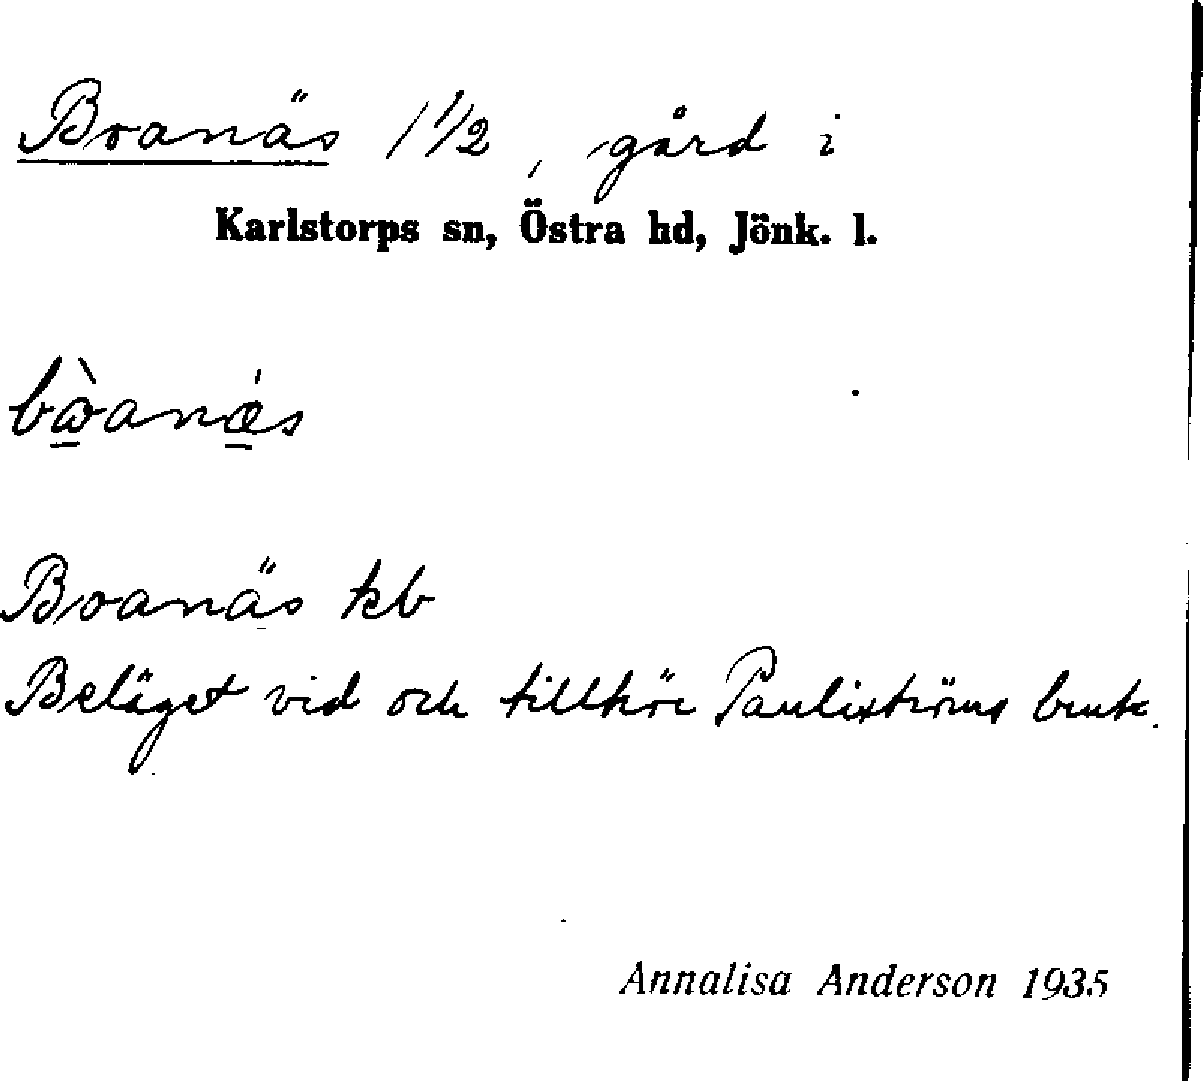 Boanäs 1 1/2, gård i
Karlstorps sn, Östra hd, Jönk. l.
Boanäs kb
Beläget vid och tillhör Pauliströms bruk.
Annalisa Anderson 1935